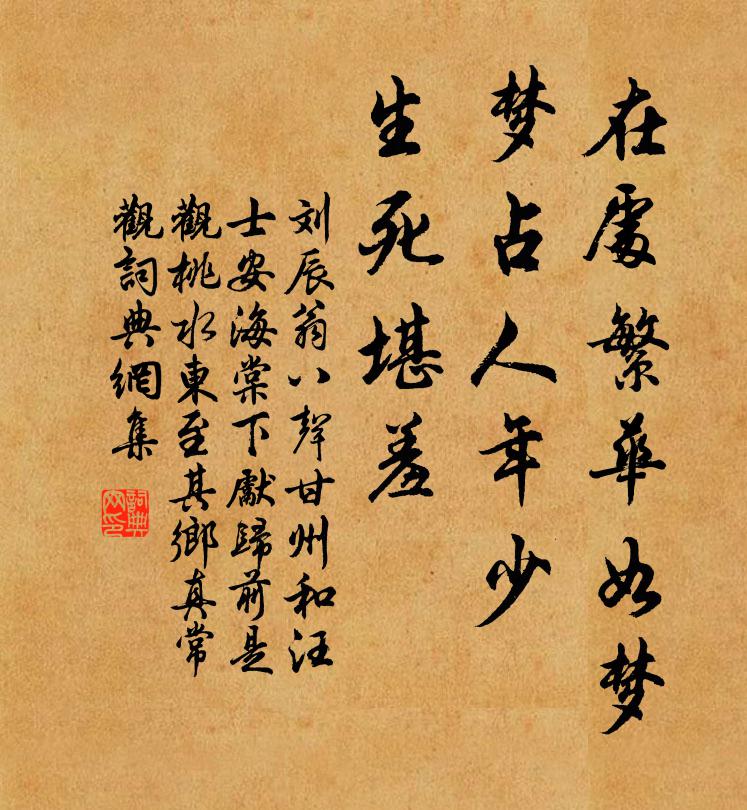 在處繁華如梦
梦占人年少
生死堪羞
刘辰翁八聲甘州和汪
士安海棠下獻歸前是
觀桃水東至其鄉真常
觀詞典網集
詞典网印